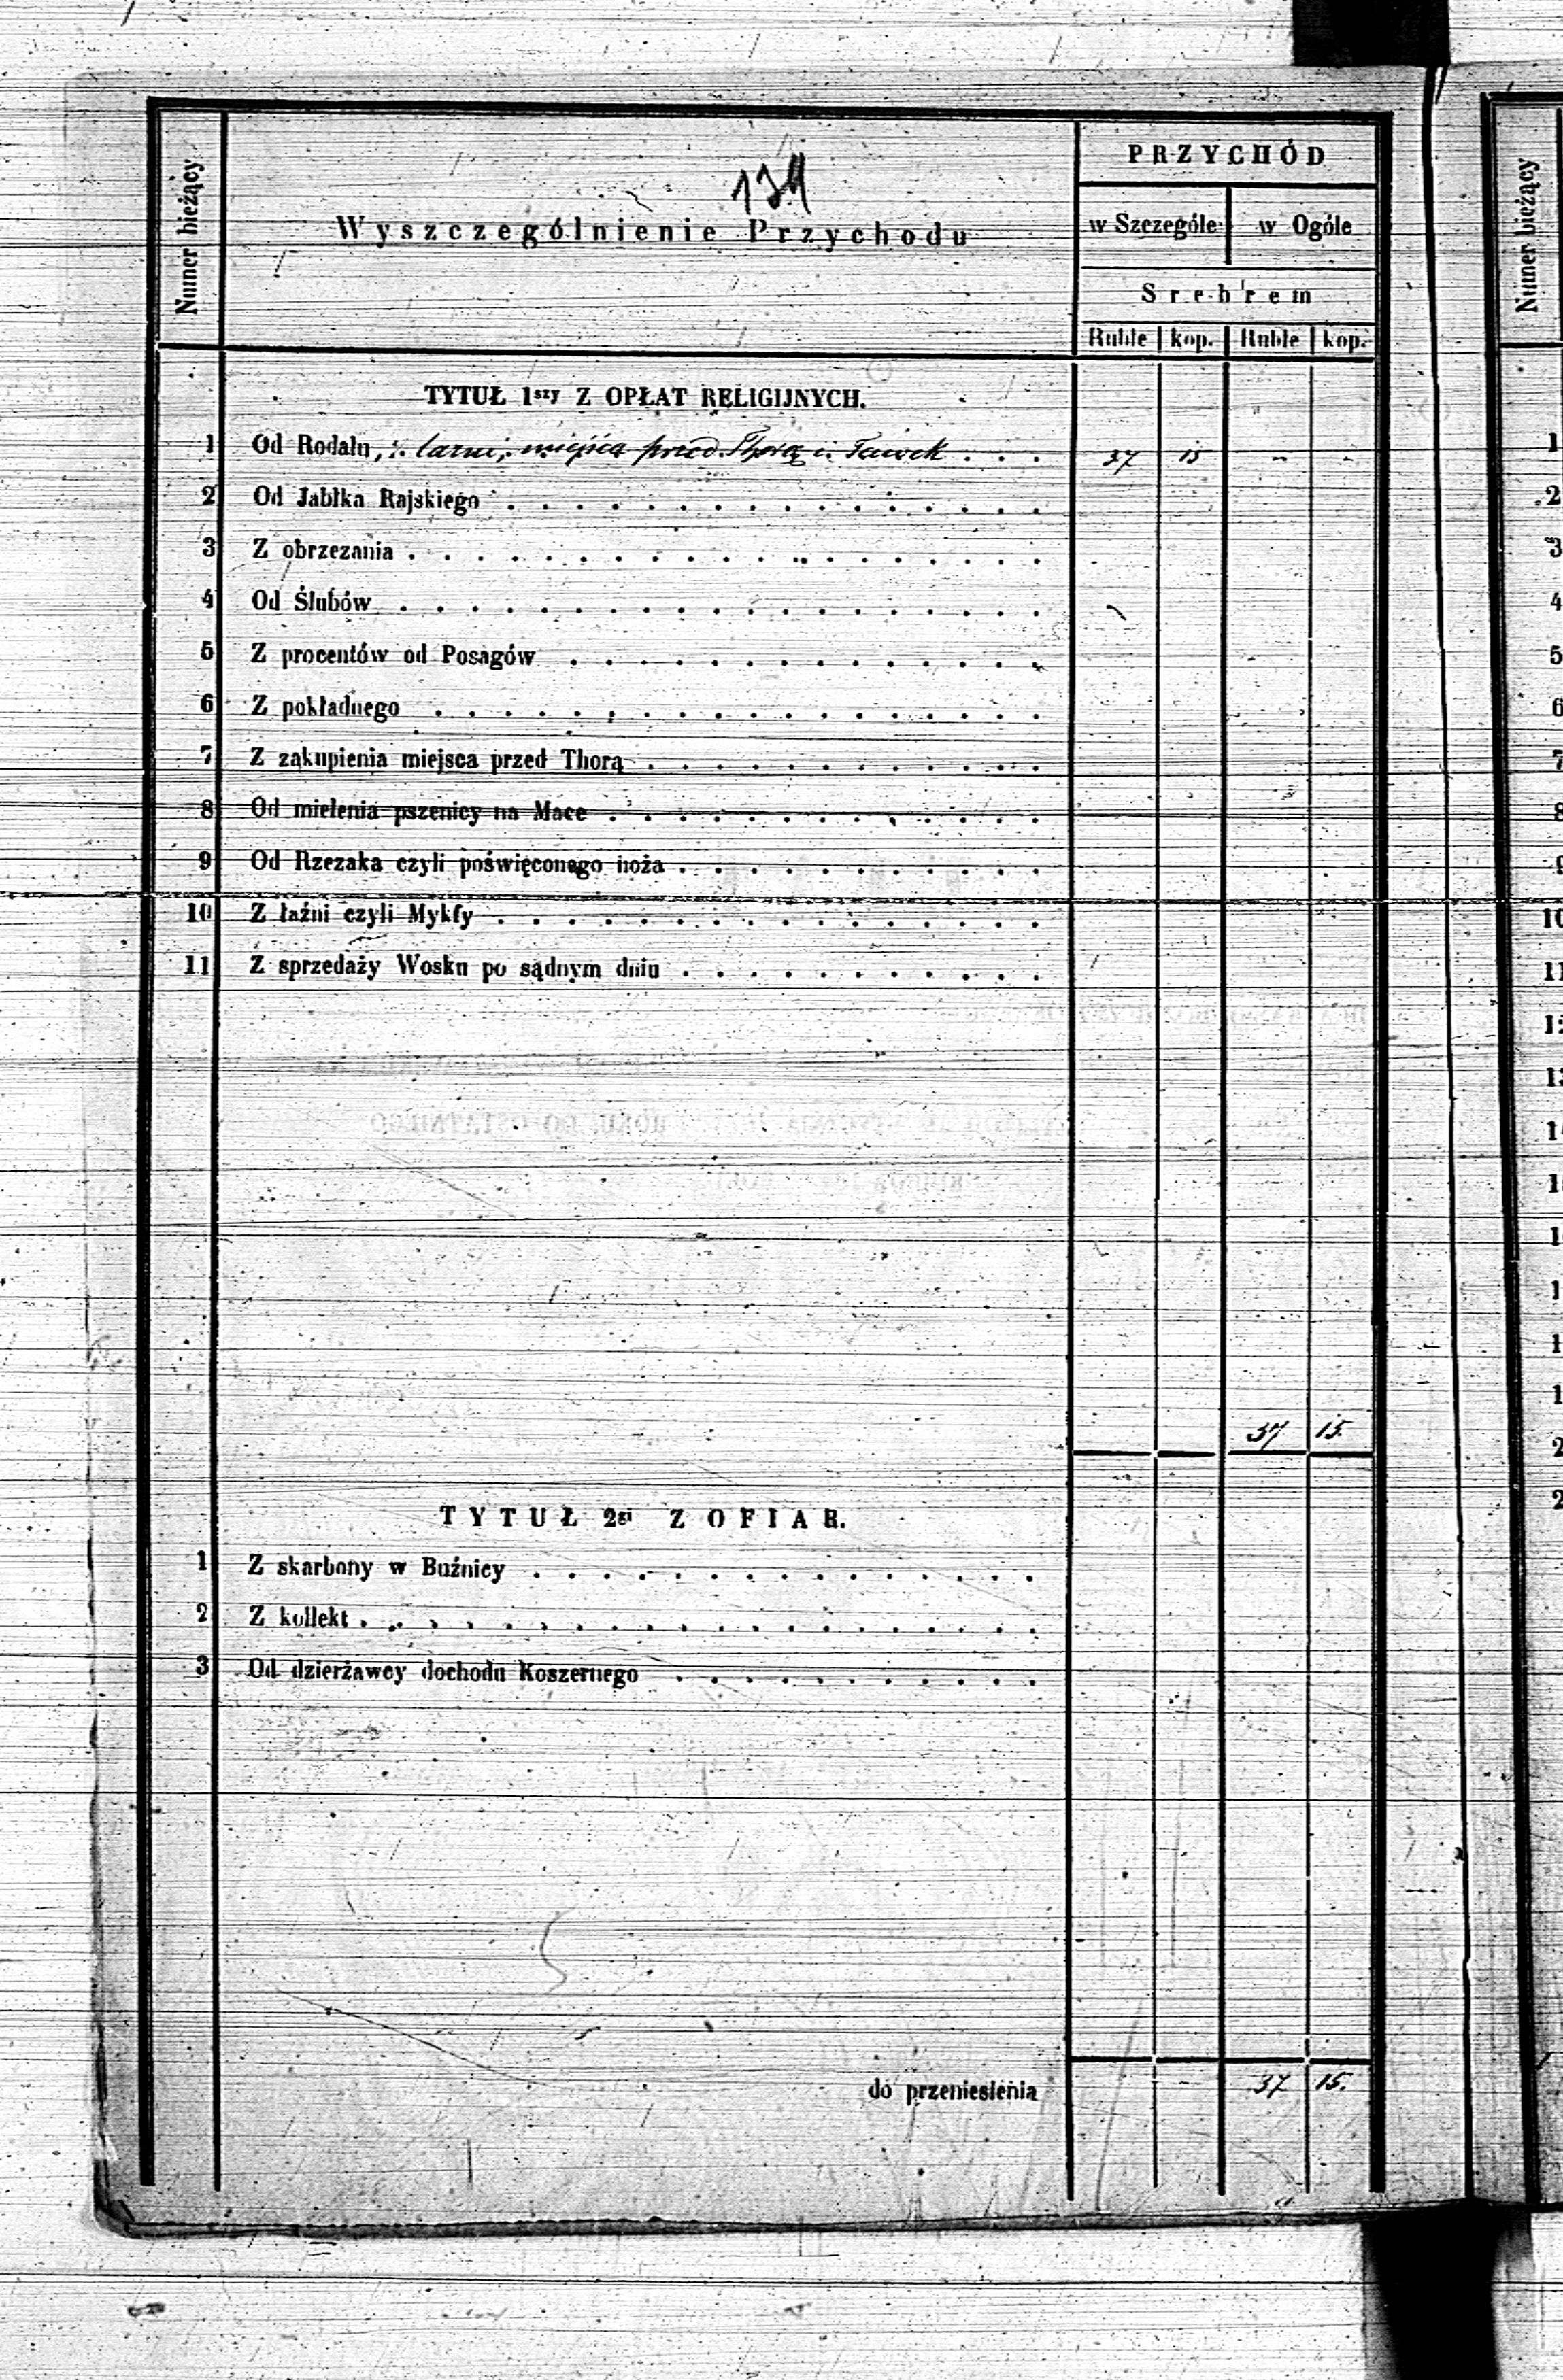 134
Numer bieżący
Wyszczególnienie Przychodu
PRZYCHÓD
w Szczególe w Ogóle
Srebrem
Ruble kop. Ruble kop.
TYTUŁ 1szy Z OPŁAT RELIGIJNYCH.
1 Od Rodału, łazni, miejsca przed Thorą i Ławek . . . 37 15 - -
2 Od Jabłka Rajskiego
3 Z obrzezania
4 Od Ślubów
5 Z procentów od Posagów
6 Z pokładnego
7 Z zakupienia miejsca przed Thorą
8 Od mielenia pszenicy na Mace
9 Od Rzezaka czyli poświęconego noża
10 Z łaźni czyli Mykfy
11 Z sprzedaży Wosku po sądnym dniu
37 15.
TYTUŁ 2gi Z OFIAR.
1 Z skarbony w Buźnicy
2 Z kollekt
3 Od dzierżawcy dochodu Koszernego
do przeniesienia 37 15.
Numer bieżący
1
2
3
4
5
6
7
8
9
10
11